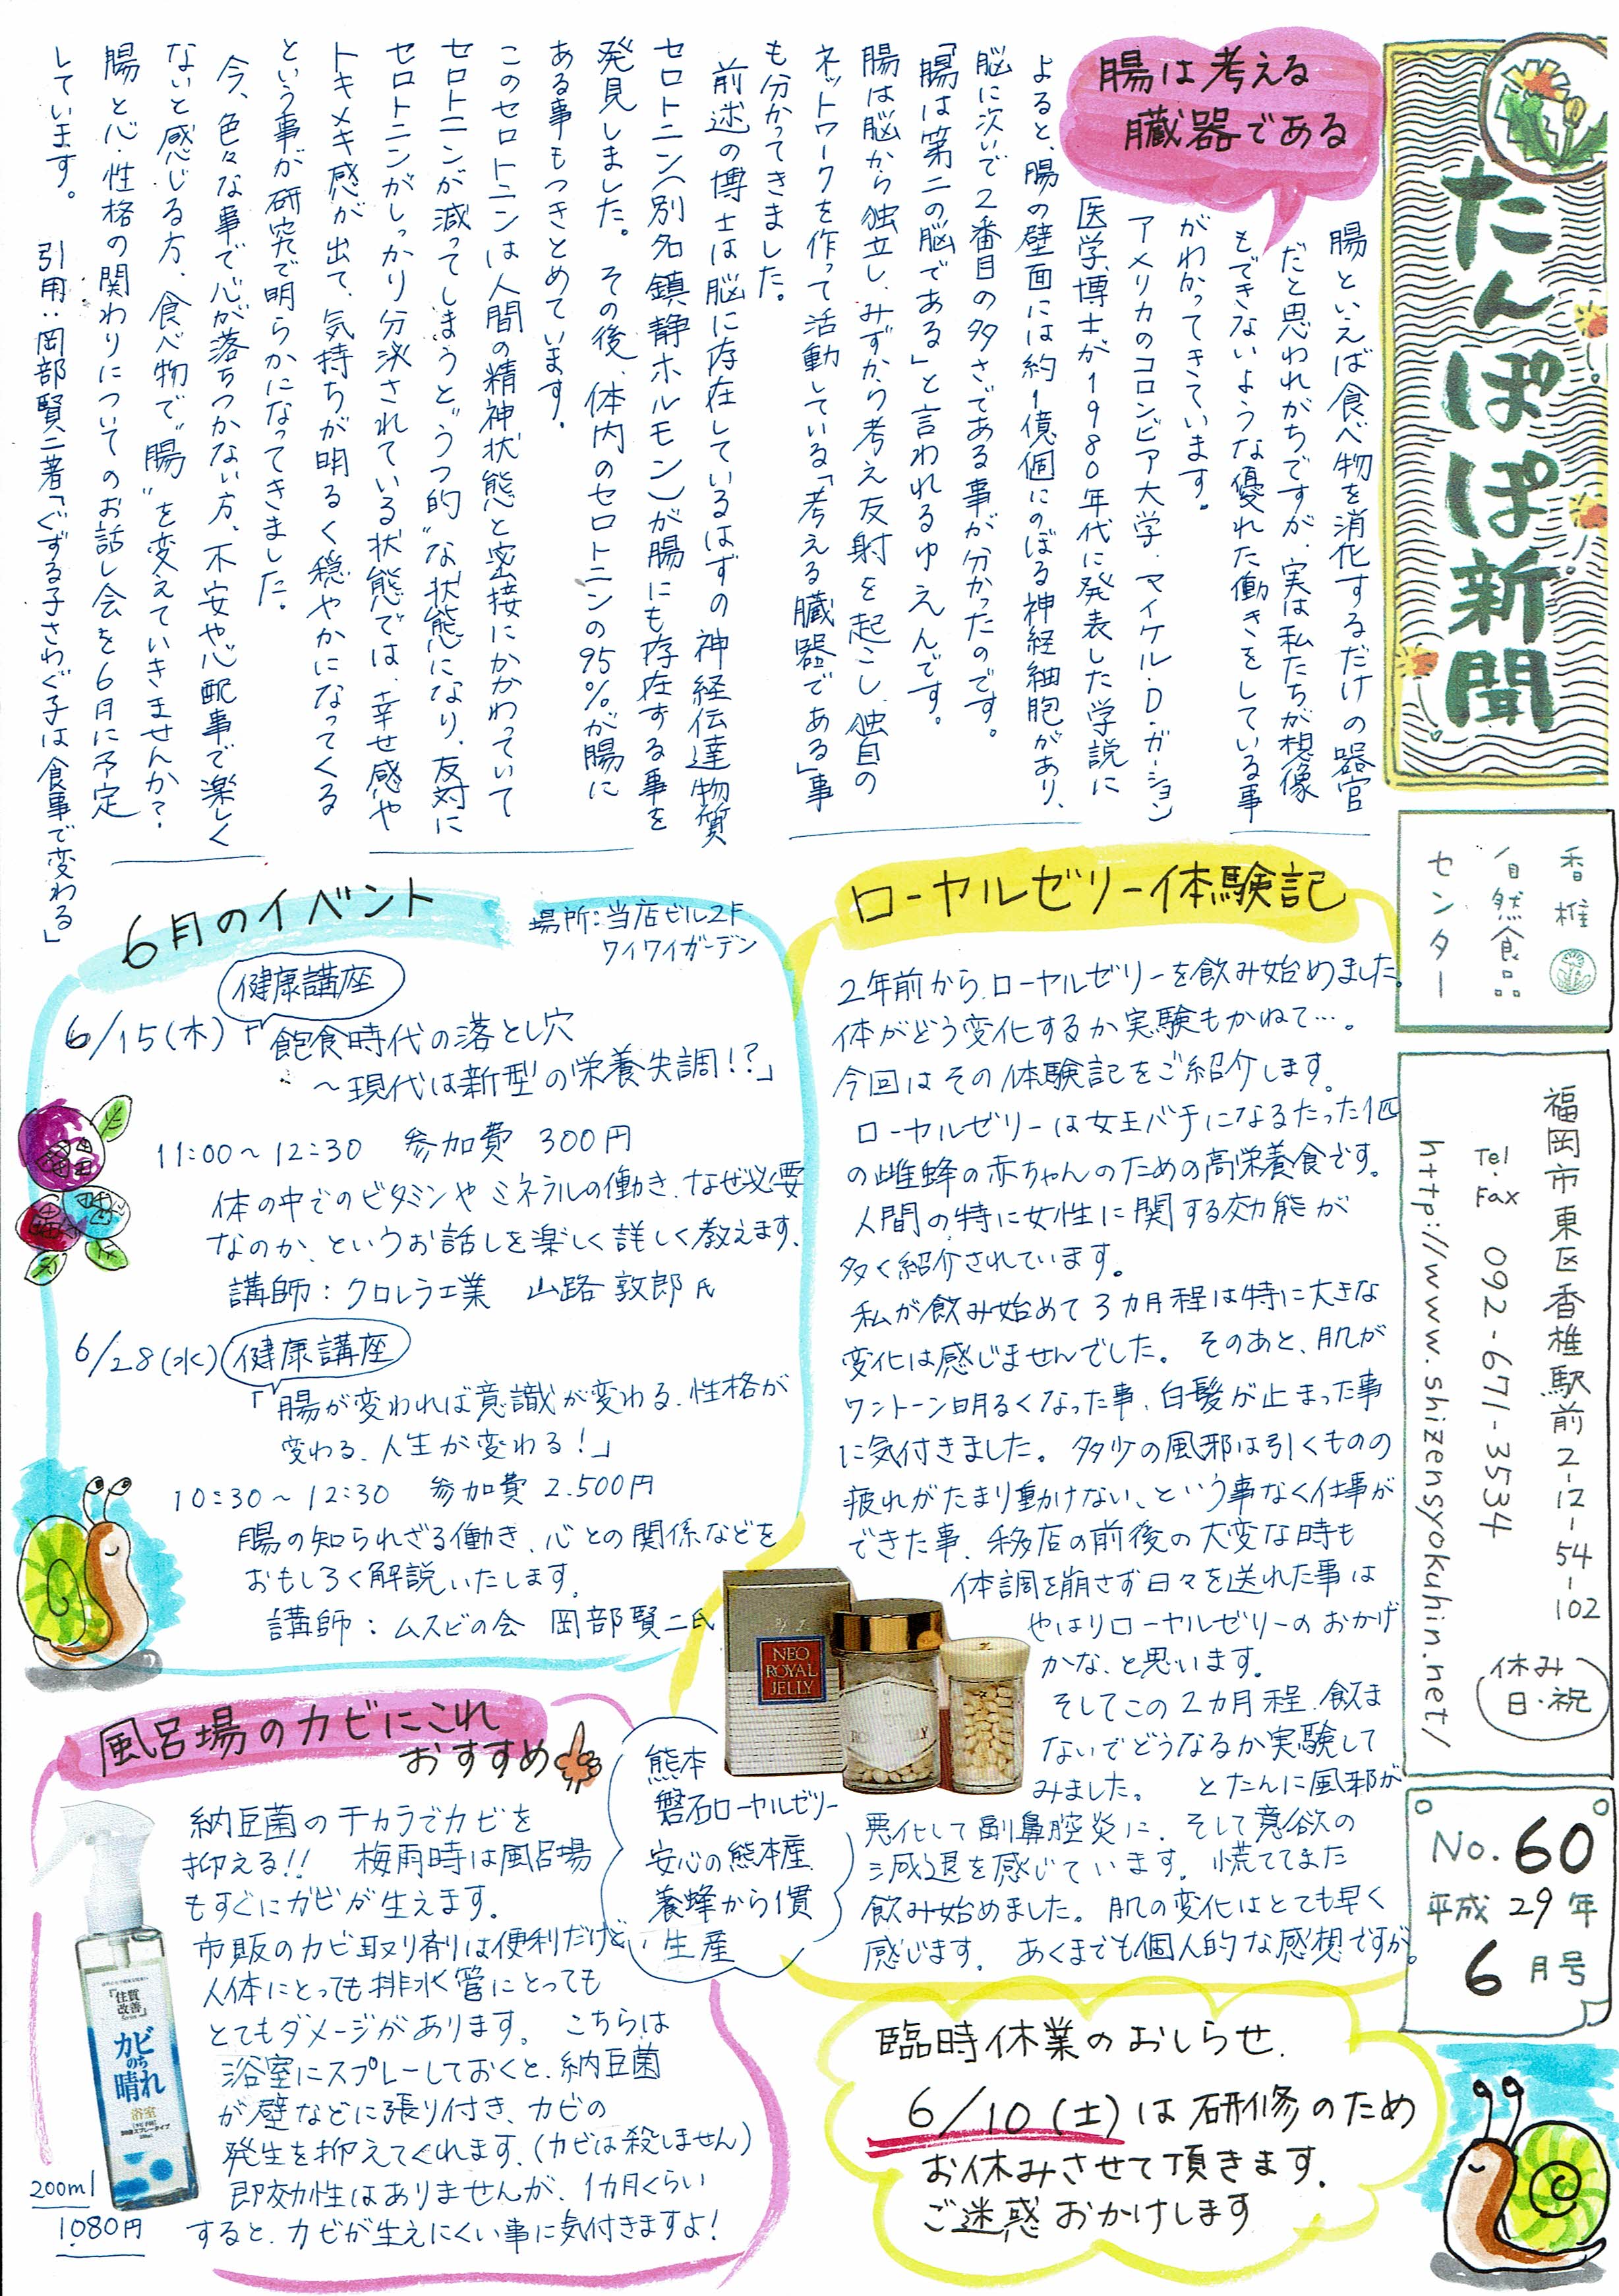 たんぽぽ新聞
香椎
自然食品
センター
福岡市東区香椎駅前2-12-54-102
Tel
Fax 092-671-3534
http://www.shizensyokuhin.net/
休み
日・祝
No.60
平成29年
6月号
腸は考える
臓器である
腸といえば食べ物を消化するだけの器官
だと思われがちですが、実は私たちが想像
もできないような優れた働きをしている事
がわかってきています。
アメリカのコロンビア大学、マイケル・D・ガーション
医学博士が1980年代に発表した学説に
よると、腸の壁面には約1億個にのぼる神経細胞があり、
脳に次いで2番目の多さである事が分かったのです。
「腸は第二の脳である」と言われるゆえんです。
腸は脳から独立し、みずから考え反射を起こし、独自の
ネットワークを作って活動している「考える臓器である」事
も分かってきました。
前述の博士は脳に存在しているはずの神経伝達物質
セロトニン(別名鎮静ホルモン)が腸にも存在する事を
発見しました。その後、体内のセロトニンの95%が腸に
ある事もつきとめています。
このセロトニンは人間の精神状態と密接にかかわっていて
セロトニンが減ってしまうと“うつ的”な状態になり、反対に
セロトニンがしっかり分泌されている状態では、幸せ感や
トキメキ感が出て、気持ちが明るく穏やかになってくる
という事が研究で明らかになってきました。
今、色々な事で心が落ちつかない方、不安や心配事で楽しく
ないと感じる方、食べ物で“腸”を変えていきませんか?
腸と心・性格の関わりについてのお話し会を6月に予定
しています。
引用:岡部賢二著「ぐずる子さわぐ子は食事で変わる」
ローヤルゼリー体験記
2年前から、ローヤルゼリーを飲み始めました。
体がどう変化するか実験もかねて…。
今回はその体験記をご紹介します。
ローヤルゼリーは女王バチになるたった1匹
の雌蜂の赤ちゃんのための高栄養食です。
人間の特に女性に関する効能が
多く紹介されています。
私が飲み始めて3カ月程は特に大きな
変化は感じませんでした。そのあと、肌が
ワントーン明るくなった事、白髪が止まった事
に気付きました。多少の風邪は引くものの
疲れがたまり動けない、という事なく仕事が
できた事、移店の前後の大変な時も
体調を崩さず日々を送れた事は
やはりローヤルゼリーのおかげ
かな、と思います。
そしてこの2カ月程、飲ま
ないでどうなるか実験して
みました。とたんに風邪が
悪化して副鼻腔炎に、そして意欲の
減退を感じています。慌ててまた
飲み始めました。肌の変化はとても早く
感じます。あくまでも個人的な感想ですが。
NEO
ROYAL
JELLY
熊本
磐石ローヤルゼリー
安心の熊本産
養蜂から1貫
生産
6月のイベント
場所:当店ビル2F
ワイワイガーデン
健康講座
6/15(木)「飽食時代の落とし穴
～現代は新型の栄養失調!?」
11:00～12:30 参加費 300円
体の中でのビタミンやミネラルの働き、なぜ必要
なのか、というお話しを楽しく詳しく教えます。
講師:クロレラ工業 山路敦郎氏
6/28(水) 健康講座
「腸が変われば意識が変わる、性格が
変わる、人生が変わる!」
10:30～12:30 参加費 2.500円
腸の知られざる働き、心との関係などを
おもしろく解説いたします。
講師:ムスビの会 岡部賢二氏
風呂場のカビにこれ
おすすめ
納豆菌のチカラでカビを
抑える!! 梅雨時は風呂場
もすぐにカビが生えます。
市販のカビ取り剤は便利だけど
人体にとっても排水管にとっても
とてもダメージがあります。こちらは
浴室にスプレーしておくと、納豆菌
が壁などに張り付き、カビの
発生を抑えてくれます。(カビは殺しません)
即効性はありませんが、1カ月くらい
すると、カビが生えにくい事に気付きますよ!
「住質
改善」
カビ
のち
晴れ
浴室
200ml
1080円
臨時休業のおしらせ
6/10(土)は研修のため
お休みさせて頂きます。
ご迷惑おかけします